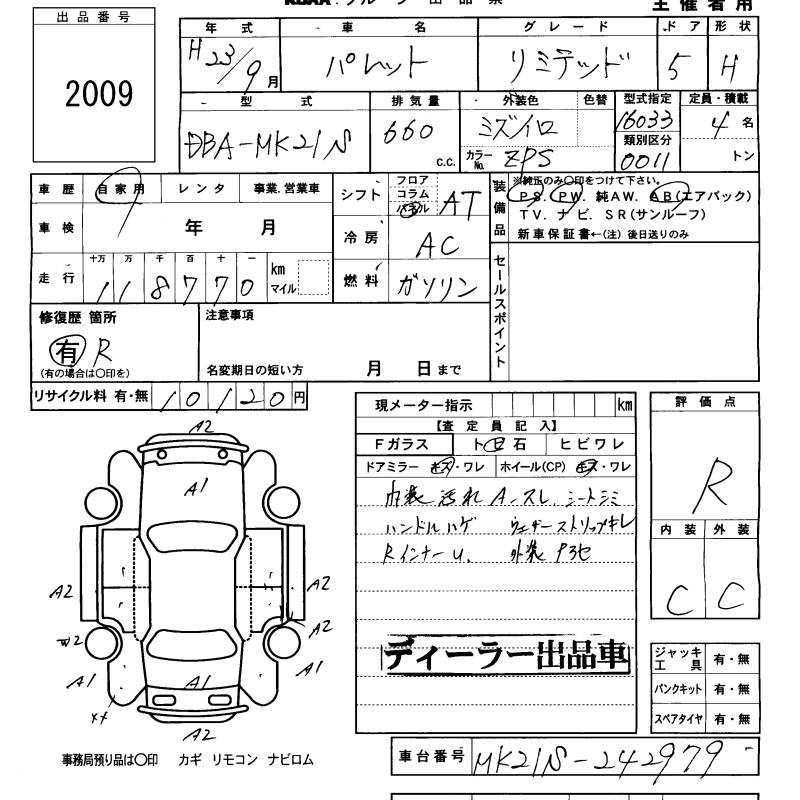 主催者用
出品番号
2009
年式 車名 グレード ドア 形状
H23/9月 パレット リミテッド 5 H
型式 排気量 外装色 色替 型式指定 定員・積載
DBA-MK21S 660 c.c. ミズイロ 16033 4名
カラーNo. ZPS 類別区分 0011 トン
車歴 自家用 レンタ 事業.営業車
シフト フロア コラム パネル AT
装備品 ※純正のみ○印をつけて下さい。
PS. PW. 純AW. AB(エアバック)
TV. ナビ. SR(サンルーフ)
新車保証書←(注)後日送りのみ
車検 年 月
冷房 AC
走行 十万 万 千 百 十 一 km マイル
118770
燃料 ガソリン
セールスポイント
修復歴 箇所
有 R
(有の場合は○印を)
注意事項
名変期日の短い方 月 日まで
リサイクル料 有・無 10120円
現メーター指示 km
【査定員記入】
Fガラス ト石 ヒビワレ
ドアミラー ・ワレ ホイール(CP) ・ワレ
内装 汚れ A.スレ.シートシミ
ハンドルハゲ ウェザーストリップキレ
Rインナーu. 外装 P3セ
ディーラー出品車
評価点
R
内装 外装
C C
ジャッキ工具 有・無
パンクキット 有・無
スペアタイヤ 有・無
A2
A1
A2
A2
A2
W2
A1
A1
A1
XX
A2
事務局預り品は○印 カギ リモコン ナビロム
車台番号 MK21S-242979